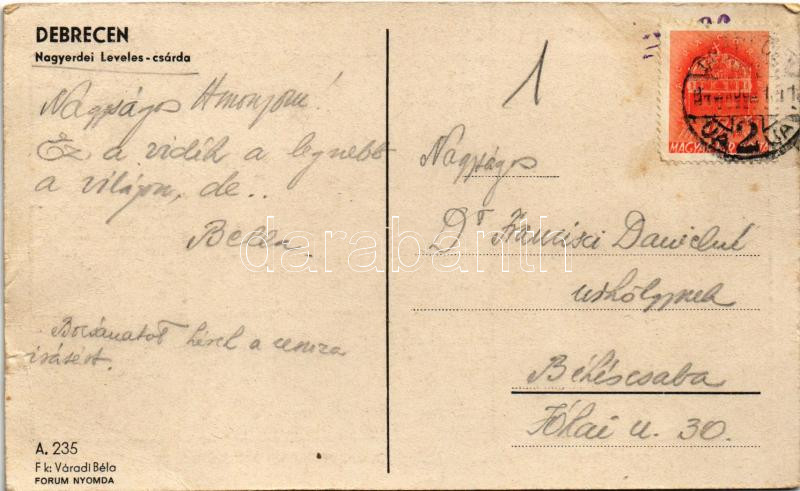 DEBRECEN
Nagyerdei Leveles-csárda
Nagyságos Asszonyom!
Ez a vidék a legszebb
a világon, de..
Bocsánatot kérek a
írásért.
A. 235
F k: Váradi Béla
FORUM NYOMDA
1
MAGYAR
2
Nagyságos
Dr Francisci Dánielné
úrhölgynek
Békéscsaba
u. 30.
darabanth